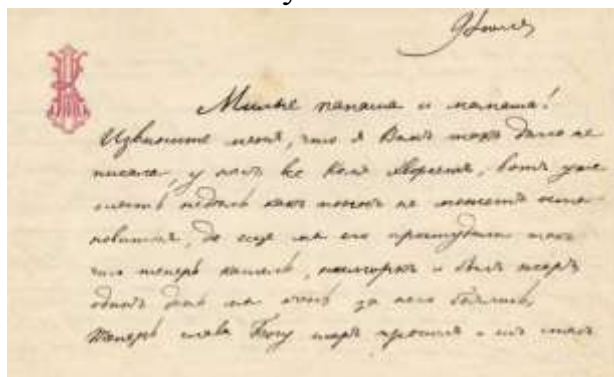 9 Іюля
Милые папаша и мамаша!
Извините меня, что я Вамъ такъ долго не
писала, у насъ все Коля хвораетъ, вотъ уже
недѣль какъ поносъ не можетъ оста
новиться, да еще мы его простудили такъ
что теперь кашель, насморкъ и былъ жаръ
одинъ день мы очень за него боялись,
теперь слава Богу жаръ прошелъ и онъ сталъ